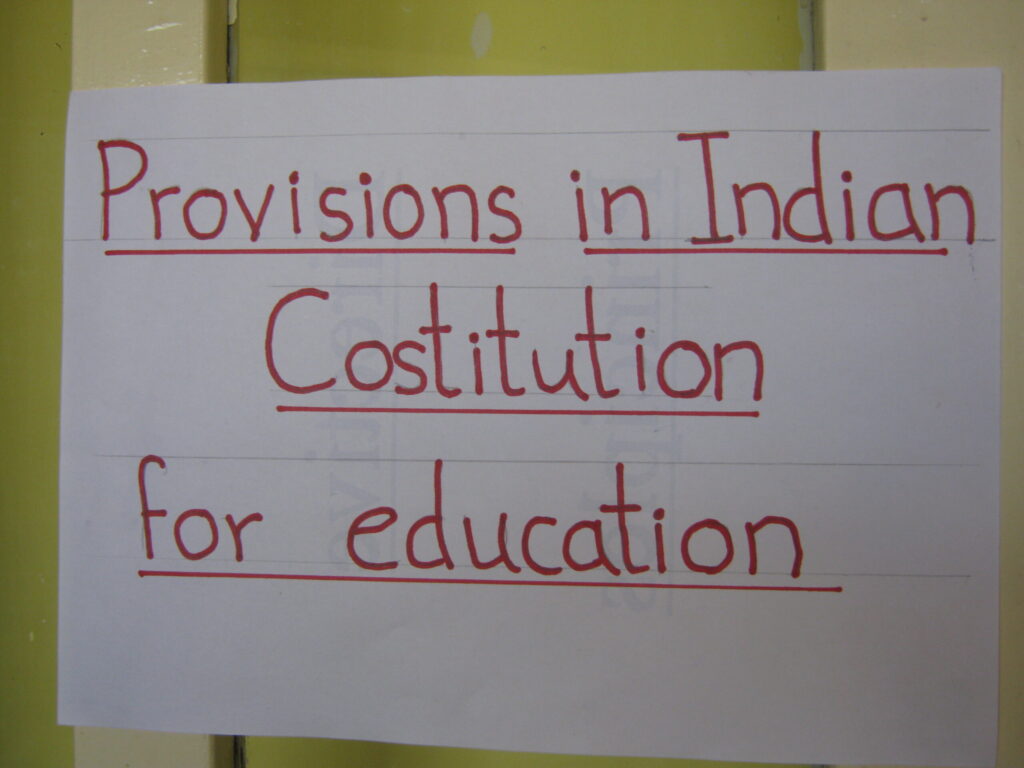 Provisions in Indian
Costitution
for education